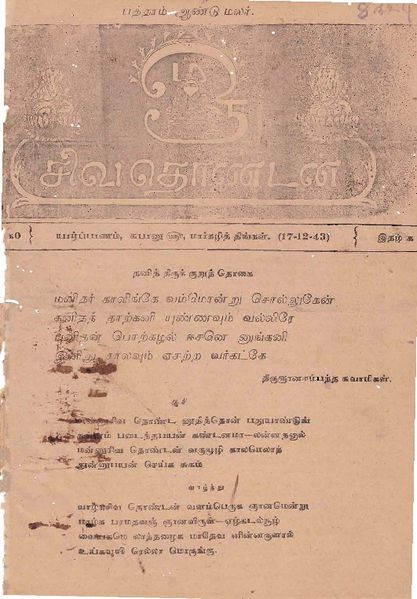 பத்தாம் ஆண்டு மலர்.
சிவதொண்டன்
யாழ்ப்பாணம், சுபானு ௵ மார்கழித் திங்கள். (17-12-43)
இதழ் க
தனித் திருக் குறுந் தொகை
மனிதர் காளிங்கே வம்மொன்று சொல்லுகேன்
கனிதந் தாற்கனி யுண்ணவும் வல்லிரே
புனிதன் பொற்கழல் ஈசனெ னுங்கனி
இனிது சாலவும் ஏசற்ற வர்கட்கே
திருஞானசம்பந்த சுவாமிகள்.
தொண்ட னுதித்தொன் பதுயாண்டுங்
படைந்துபயன் கண்டனமா—லன்னதனால்
மன்னுசிவ தொண்டன் வருமூழி காலமெலாந்
துன்னுபயன் செய்க சுகம்
வாழ்த்து
வாழ்கசிவ தொண்டன் வளம்பெருக ஞானமென்று
மாழ்க பரமதவஞ் ஞானவிருள்—ஏழ்கடல்சூழ்
வையகமெ லாந்தழைக மாதேவ நின்னருளால்
உய்கவுயி ரெல்லா மொருங்கு.